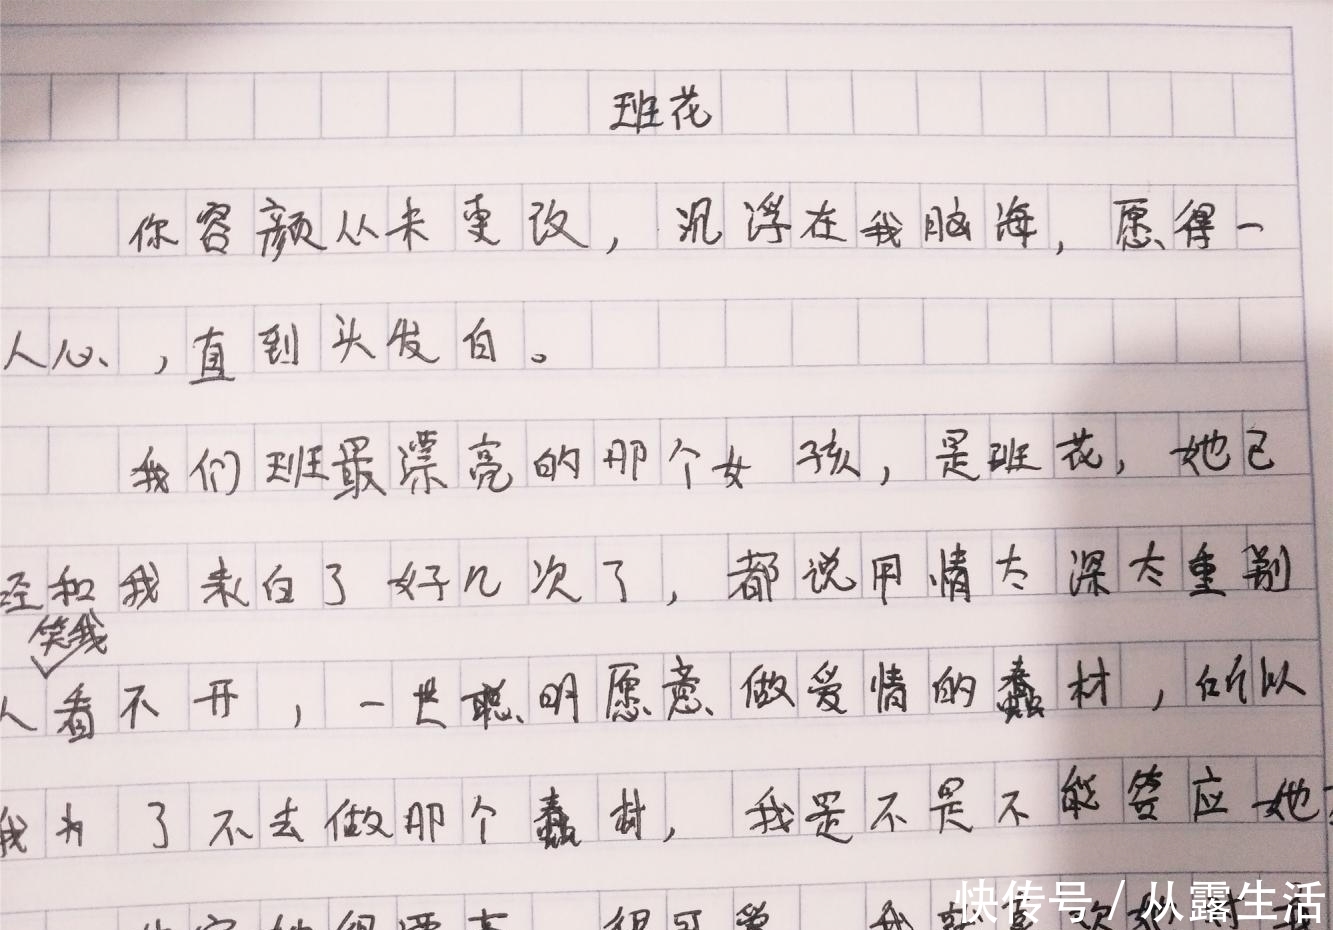 班花
你容颜从未更改，沉浮在我脑海，愿得一
人心，直到头发白。
我们班最漂亮的那个女孩，是班花，她已
经和我表白了好几次了，都说用情太深太重别
笑我
人看不开，一世聪明愿意做爱情的蠢材，所以
我为了不去做那个蠢材，我是不是不能答应她
她很漂亮 很可爱 我
快传号/从露生活